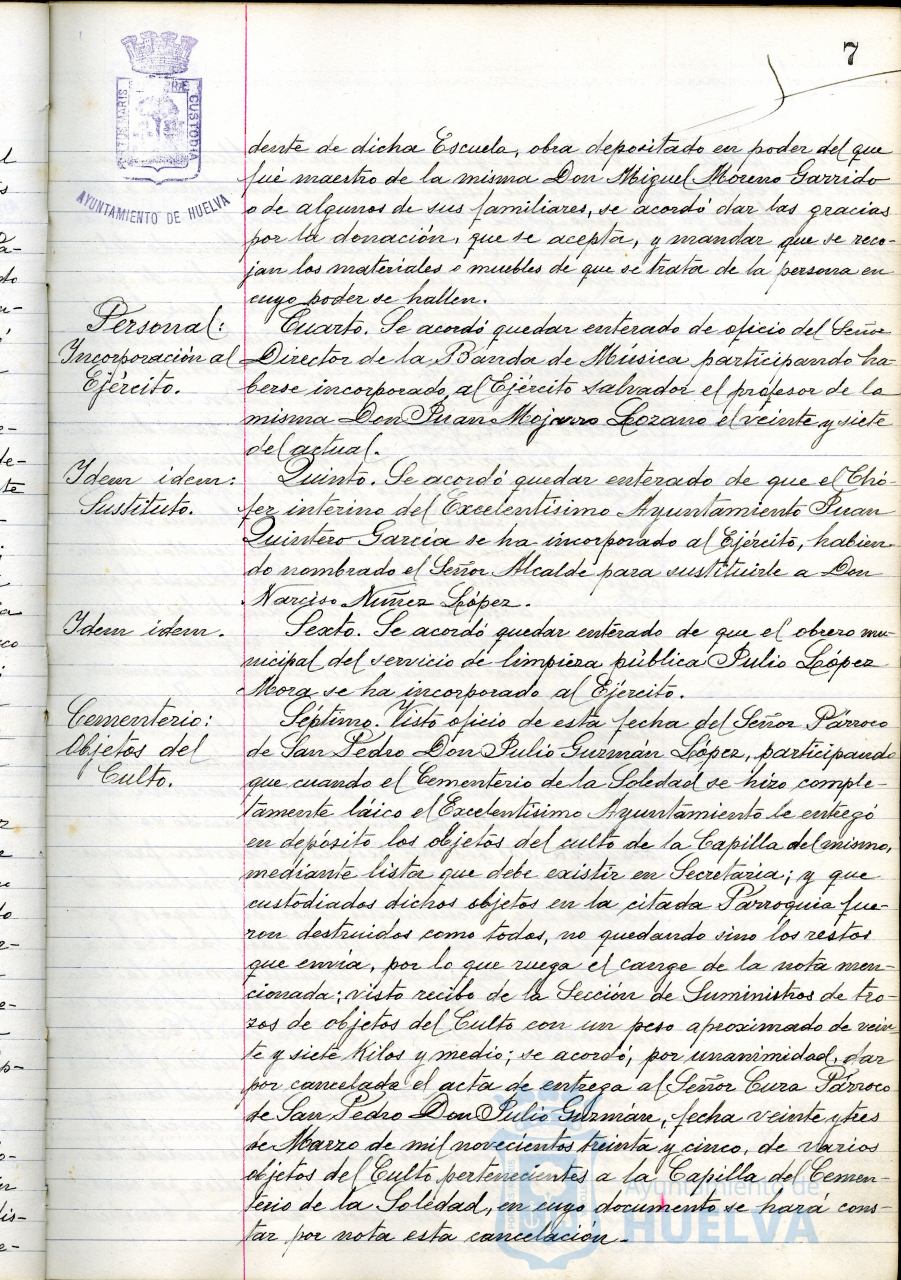 7
PORTUS MARIS
CUSTODIA
AYUNTAMIENTO DE HUELVA
dente de dicha Escuela, obra depositado en poder del que
fué maestro de la misma Don Miguel Moreno Garrido
o de algunos de sus familiares, se acordó dar las gracias
por la donación, que se acepta, y mandar que se reco-
jan los materiales o muebles de que se trata de la persona en
cuyo poder se hallen.
Personal:
Incorporación al
Ejército.
Cuarto. Se acordó quedar enterado de oficio del Señor
Director de la Banda de Música participando ha-
berse incorporado al Ejército salvador el profesor de la
misma Don Juan Mojarro Lozano el veinte y siete
del actual.
Idem idem:
Sustituto.
Quinto. Se acordó quedar enterado de que el Chó-
fer interino del Excelentísimo Ayuntamiento Juan
Quintero García se ha incorporado al Ejército, habien-
do nombrado el Señor Alcalde para sustituirle a Don
Narciso Nuñez López.
Idem idem.
Sexto. Se acordó quedar enterado de que el obrero mu-
nicipal del servicio de limpieza pública Julio López
Mora se ha incorporado al Ejército.
Cementerio:
Objetos del
Culto.
Séptimo. Visto oficio de esta fecha del Señor Párroco
de San Pedro Don Julio Guzmán López, participando
que cuando el Cementerio de la Soledad se hizo comple-
tamente láico el Excelentísimo Ayuntamiento le entregó
en depósito los objetos del culto de la Capilla del mismo,
mediante lista que debe existir en Secretaria; y que
custodiados dichos objetos en la citada Parroquia fue-
ron destruidos como todos, no quedando sino los restos
que envia, por lo que ruega el cange de la nota men-
cionada; visto recibo de la Sección de Suministros de tro-
zos de objetos del Culto con un peso aproximado de vein-
te y siete Kilos y medio; se acordó, por unanimidad, dar
por cancelada el acta de entrega al Señor Cura Párroco
de San Pedro Don Julio Guzmán, fecha veinte y tres
de Marzo de mil novecientos treinta y cinco, de varios
objetos del Culto pertenecientes a la Capilla del Cemen-
terio de la Soledad, en cuyo documento se hará cons-
tar por nota esta cancelación.-
Ayuntamiento de
HUELVA